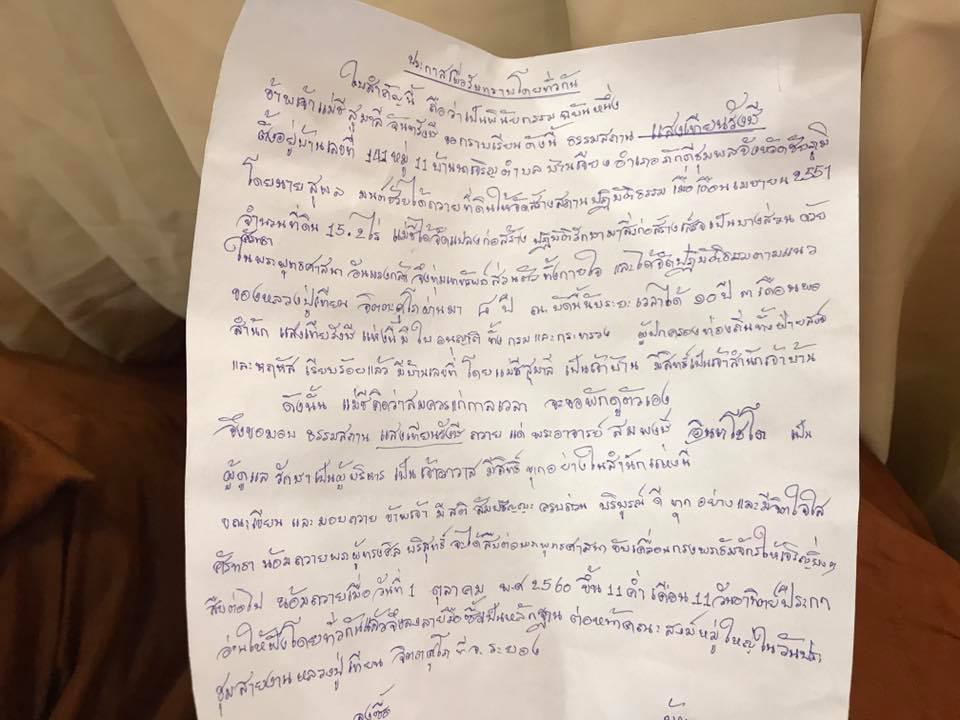 ประกาศเพื่อรับทราบโดยทั่วกัน
ใบสำคัญนี้ ถือว่าเป็นพินัยกรรม ฉบับหนึ่ง
ข้าพเจ้าแม่ชีสุมาลี จันทรังษี ขอกราบเรียนดังนี้ ธรรมสถาน แสงเทียนรังษี
ตั้งอยู่บ้านเลขที่ 141 หมู่ 11 บ้านนาเจริญ ตำบล บ้านเจียง อำเภอภักดีชุมพล จังหวัดชัยภูมิ
โดยนายสุพล ได้ถวายที่ดินให้จัดสร้างสถานปฏิบัติธรรม เมื่อเดือนเมษายน 2551
จำนวนที่ดิน 15.2 ไร่ แม่ชีได้ ก่อสร้าง ก่อสร้างเสร็จเป็นบางส่วน ด้วยศรัทธา
ในพระพุทธศาสนา อันแรงกล้า จึงทุ่มเททรัพย์ส่วนตัว ทั้งกายใจ และได้จัดปฏิบัติธรรมตามแนว
ของหลวงปู่เทียน จิตตสุโภ ผ่านมา ๘ ปี ณ บัดนี้นับระยะเวลาได้ ๑๐ ปี ๓ เดือน
สำนัก แสงเทียนรังษี แห่งนี้มีใบอนุญาติ ทั้ง กรม และกระทรวง ผู้ปกครองท้องถิ่นทั้งฝ่ายสงฆ์
และฆฤหัส เรียบร้อยแล้ว มีบ้านเลขที่ โดยแม่ชีสุมาลี เป็นเจ้าบ้าน มีสิทธิ์เป็นเจ้าสำนักเจ้าบ้าน
ดังนั้น แม่ชีคิดว่าสมควรแก่กาลเวลา จะขอพักดูตัวเอง
จึงขอมอบ ธรรมสถาน แสงเทียนรังษี ถวาย แด่ พระอาจารย์ สมพงษ์ เป็น
ผู้ดูแล รักษาเป็นผู้บริหาร เป็นเจ้าอาวาส มีสิทธิ์ ทุกอย่างในสำนักแห่งนี้
ขณะเขียน และมอบถวาย ข้าพเจ้า มีสติ สัมปชัญญะ ครบถ้วน บริบูรณ์ ดี ทุกอย่าง และมีจิตใจใส
ศรัทธา น้อมถวายพระผู้ทรงศีล บริสุทธิ์ จะได้สืบต่อพระพุทธศาสนา ขับเคลื่อนกงพระธัมจักรให้เจริญยิ่งๆ
สืบต่อไป น้อมถวายเมื่อ วันที่ 1 ตุลาคม พ.ศ 2560 ขึ้น 11 ค่ำ เดือน 11 วันอาทิตย์ปีระกา
อ่านให้ฟังโดยทั่วกันแล้วจึงลงลายมือชื่อเป็นหลักฐาน ต่อหน้าคณะสงฆ์หมู่ใหญ่ในวันประ
ชุมสายงานหลวงปู่เทียน จิตตสุโภ ที่ จ. ระยอง
ลงชื่อ